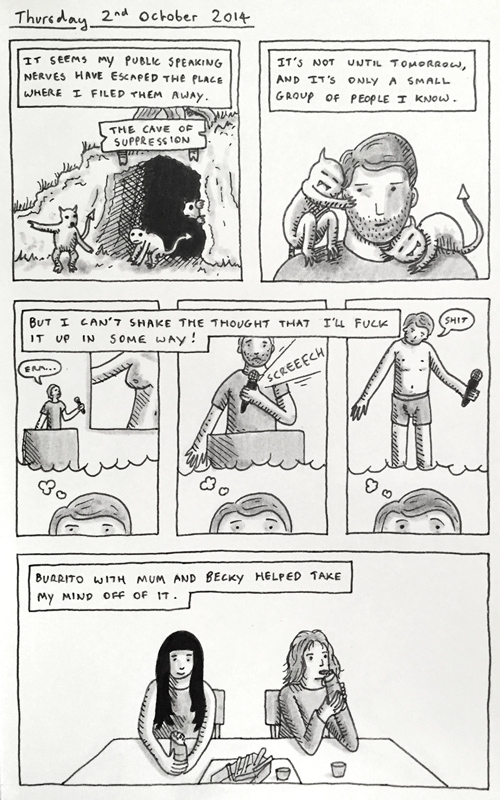 Thursday 2nd October 2014
IT SEEMS MY PUBLIC SPEAKING
NERVES HAVE ESCAPED THE PLACE
WHERE I FILED THEM AWAY.
THE CAVE OF
SUPPRESSION
IT'S NOT UNTIL TOMORROW,
AND IT'S ONLY A SMALL
GROUP OF PEOPLE I KNOW.
BUT I CAN'T SHAKE THE THOUGHT THAT I'LL FUCK
IT UP IN SOME WAY!
ERM...
SCREEECH
SHIT
BURRITO WITH MUM AND BECKY HELPED TAKE
MY MIND OFF OF IT.